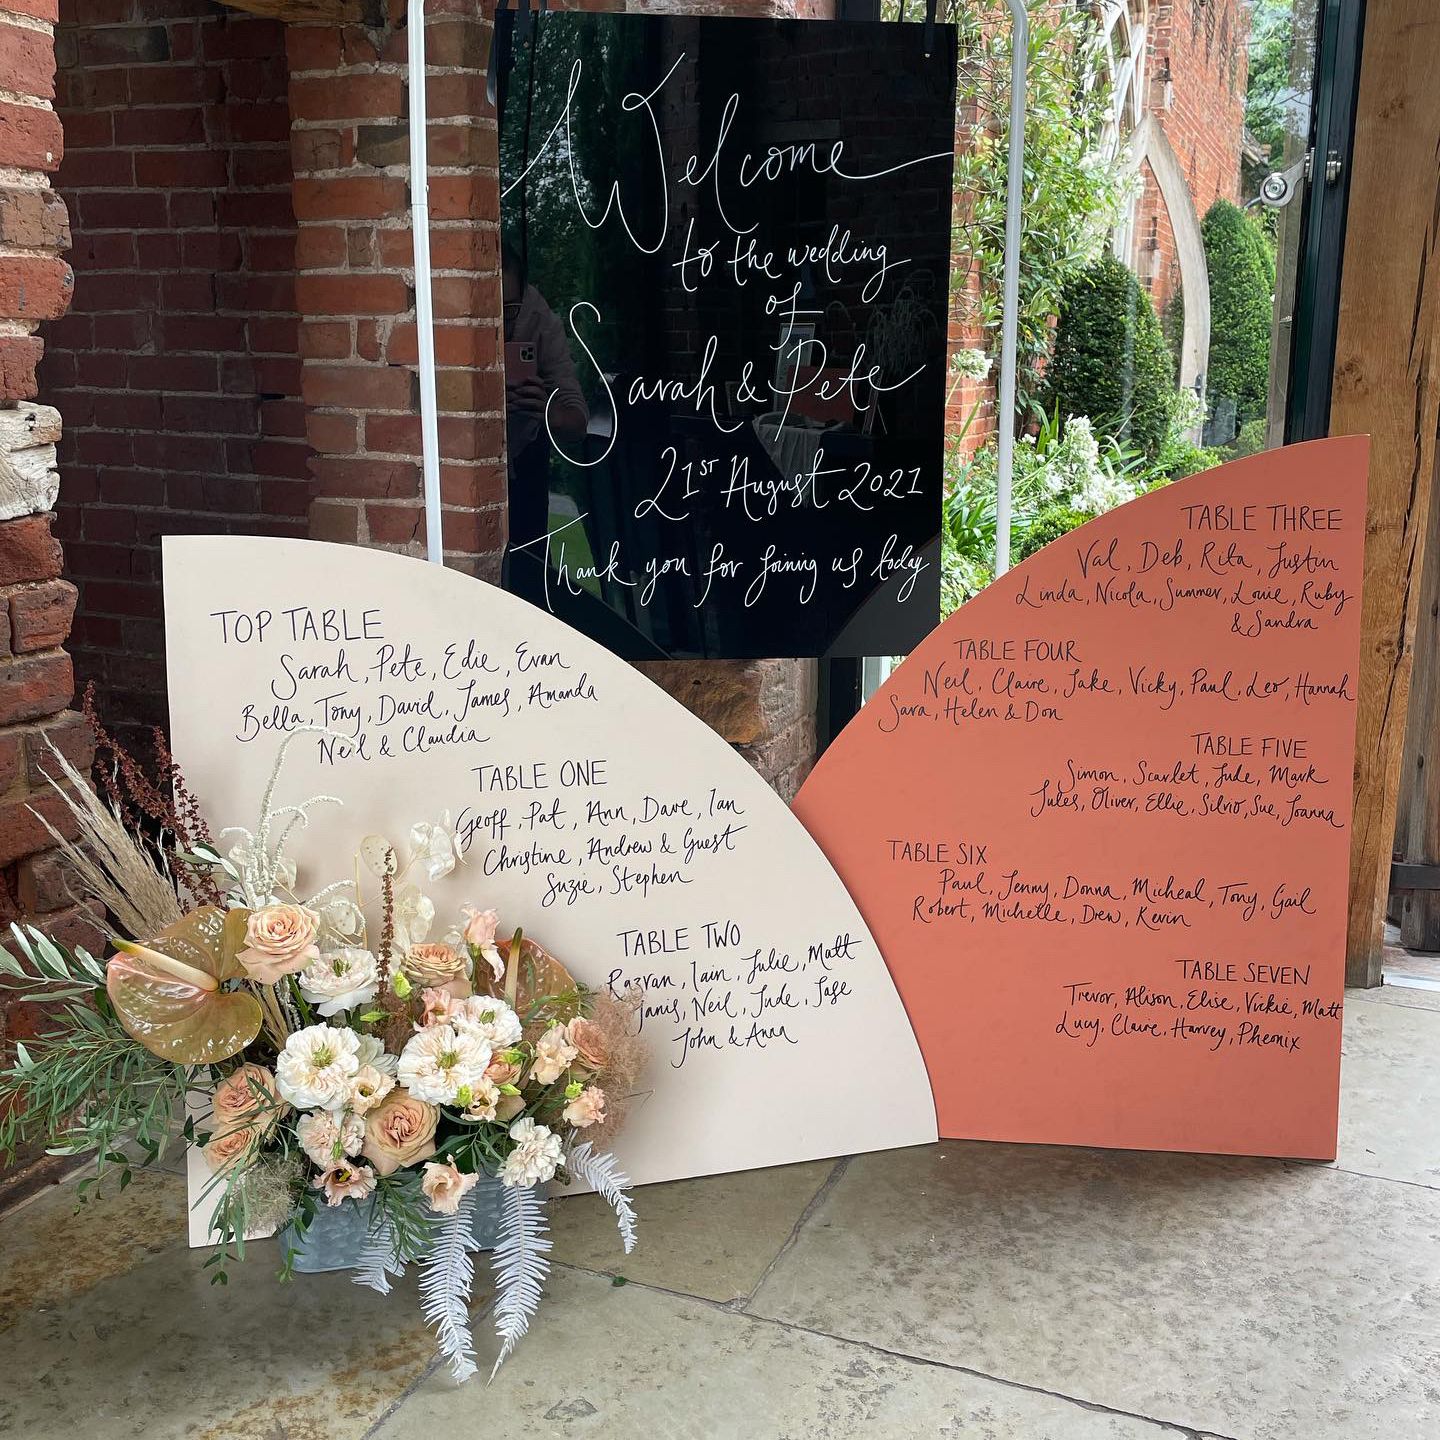 Welcome
to the wedding
of
Sarah & Pete
21ST August 2021
Thank you for joining us today
TOP TABLE
Sarah, Pete, Edie, Evan
Bella, Tony, David, James, Amanda
Neil & Claudia
TABLE ONE
Geoff, Pat, Ann, Dave, Ian
Christine, Andrew & Guest
Suzie, Stephen
TABLE TWO
Razvan, Iain, Julie, Matt
Janis, Neil, Jude, Jase
John & Anna
TABLE THREE
Val, Deb, Rita, Justin
Linda, Nicola, Summer, Louie, Ruby
& Sandra
TABLE FOUR
Neil, Claire, Jake, Vicky, Paul, Leo, Hannah
Sara, Helen & Don
TABLE FIVE
Simon, Scarlet, Jude, Mark
Jules, Oliver, Ellie, Silvio, Sue, Joanna
TABLE SIX
Paul, Jenny, Donna, Micheal, Tony, Gail
Robert, Michelle, Drew, Kevin
TABLE SEVEN
Trevor, Alison, Elise, Vickie, Matt
Lucy, Claire, Harvey, Pheonix